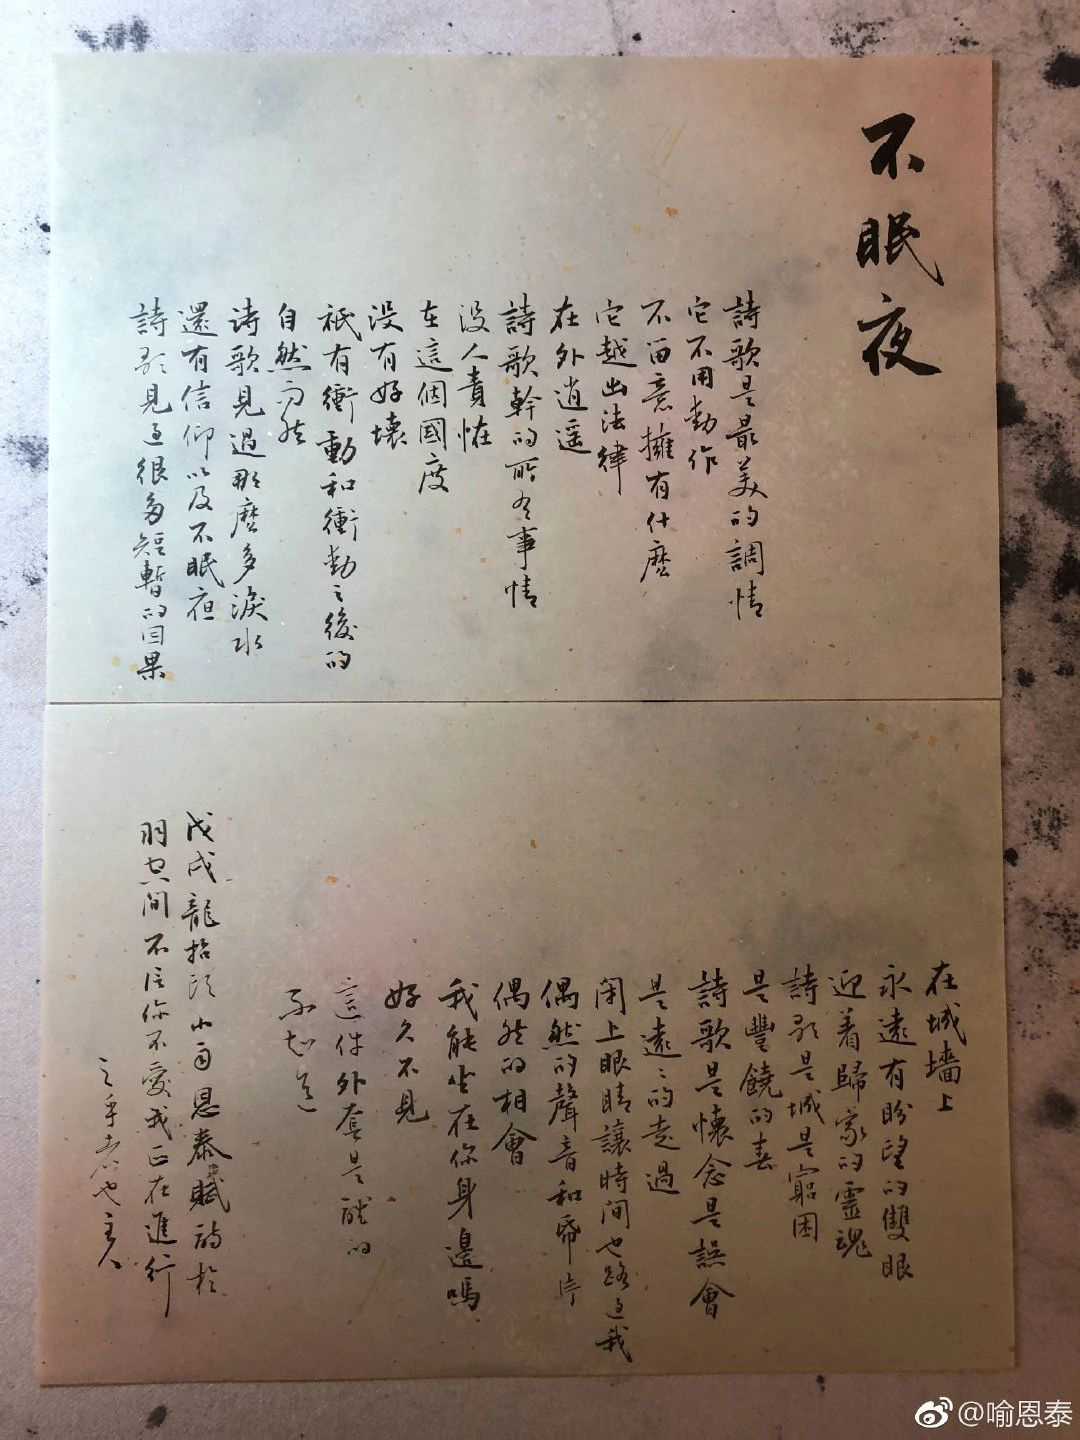 不眠夜
詩歌是最美的調情
它不用動作
不留意擁有什麼
它越出法律
在外逍遥
詩歌幹的所有事情
沒人責怪
在這個國度
没有好壞
祇有衝動和衝動之後的
自然而然
诗歌見過那麼多淚水
還有信仰以及不眠夜
詩歌見過很多短暫的因果
在城墻上
永遠有盼望的雙眼
迎着歸家的靈魂
詩歌是城是窮困
是豐饒的春
詩歌是懷念是誤會
是遠遠的走過
閉上眼睛讓時間也路過我
偶然的聲音和希冀
偶然的相會
我能坐在你身邊嗎
好久不見
這件外套是誰的
不知道
戊戌龍抬頭小雨恩泰賦詩於
羽空間不信你不愛我正在進行
主人
@喻恩泰